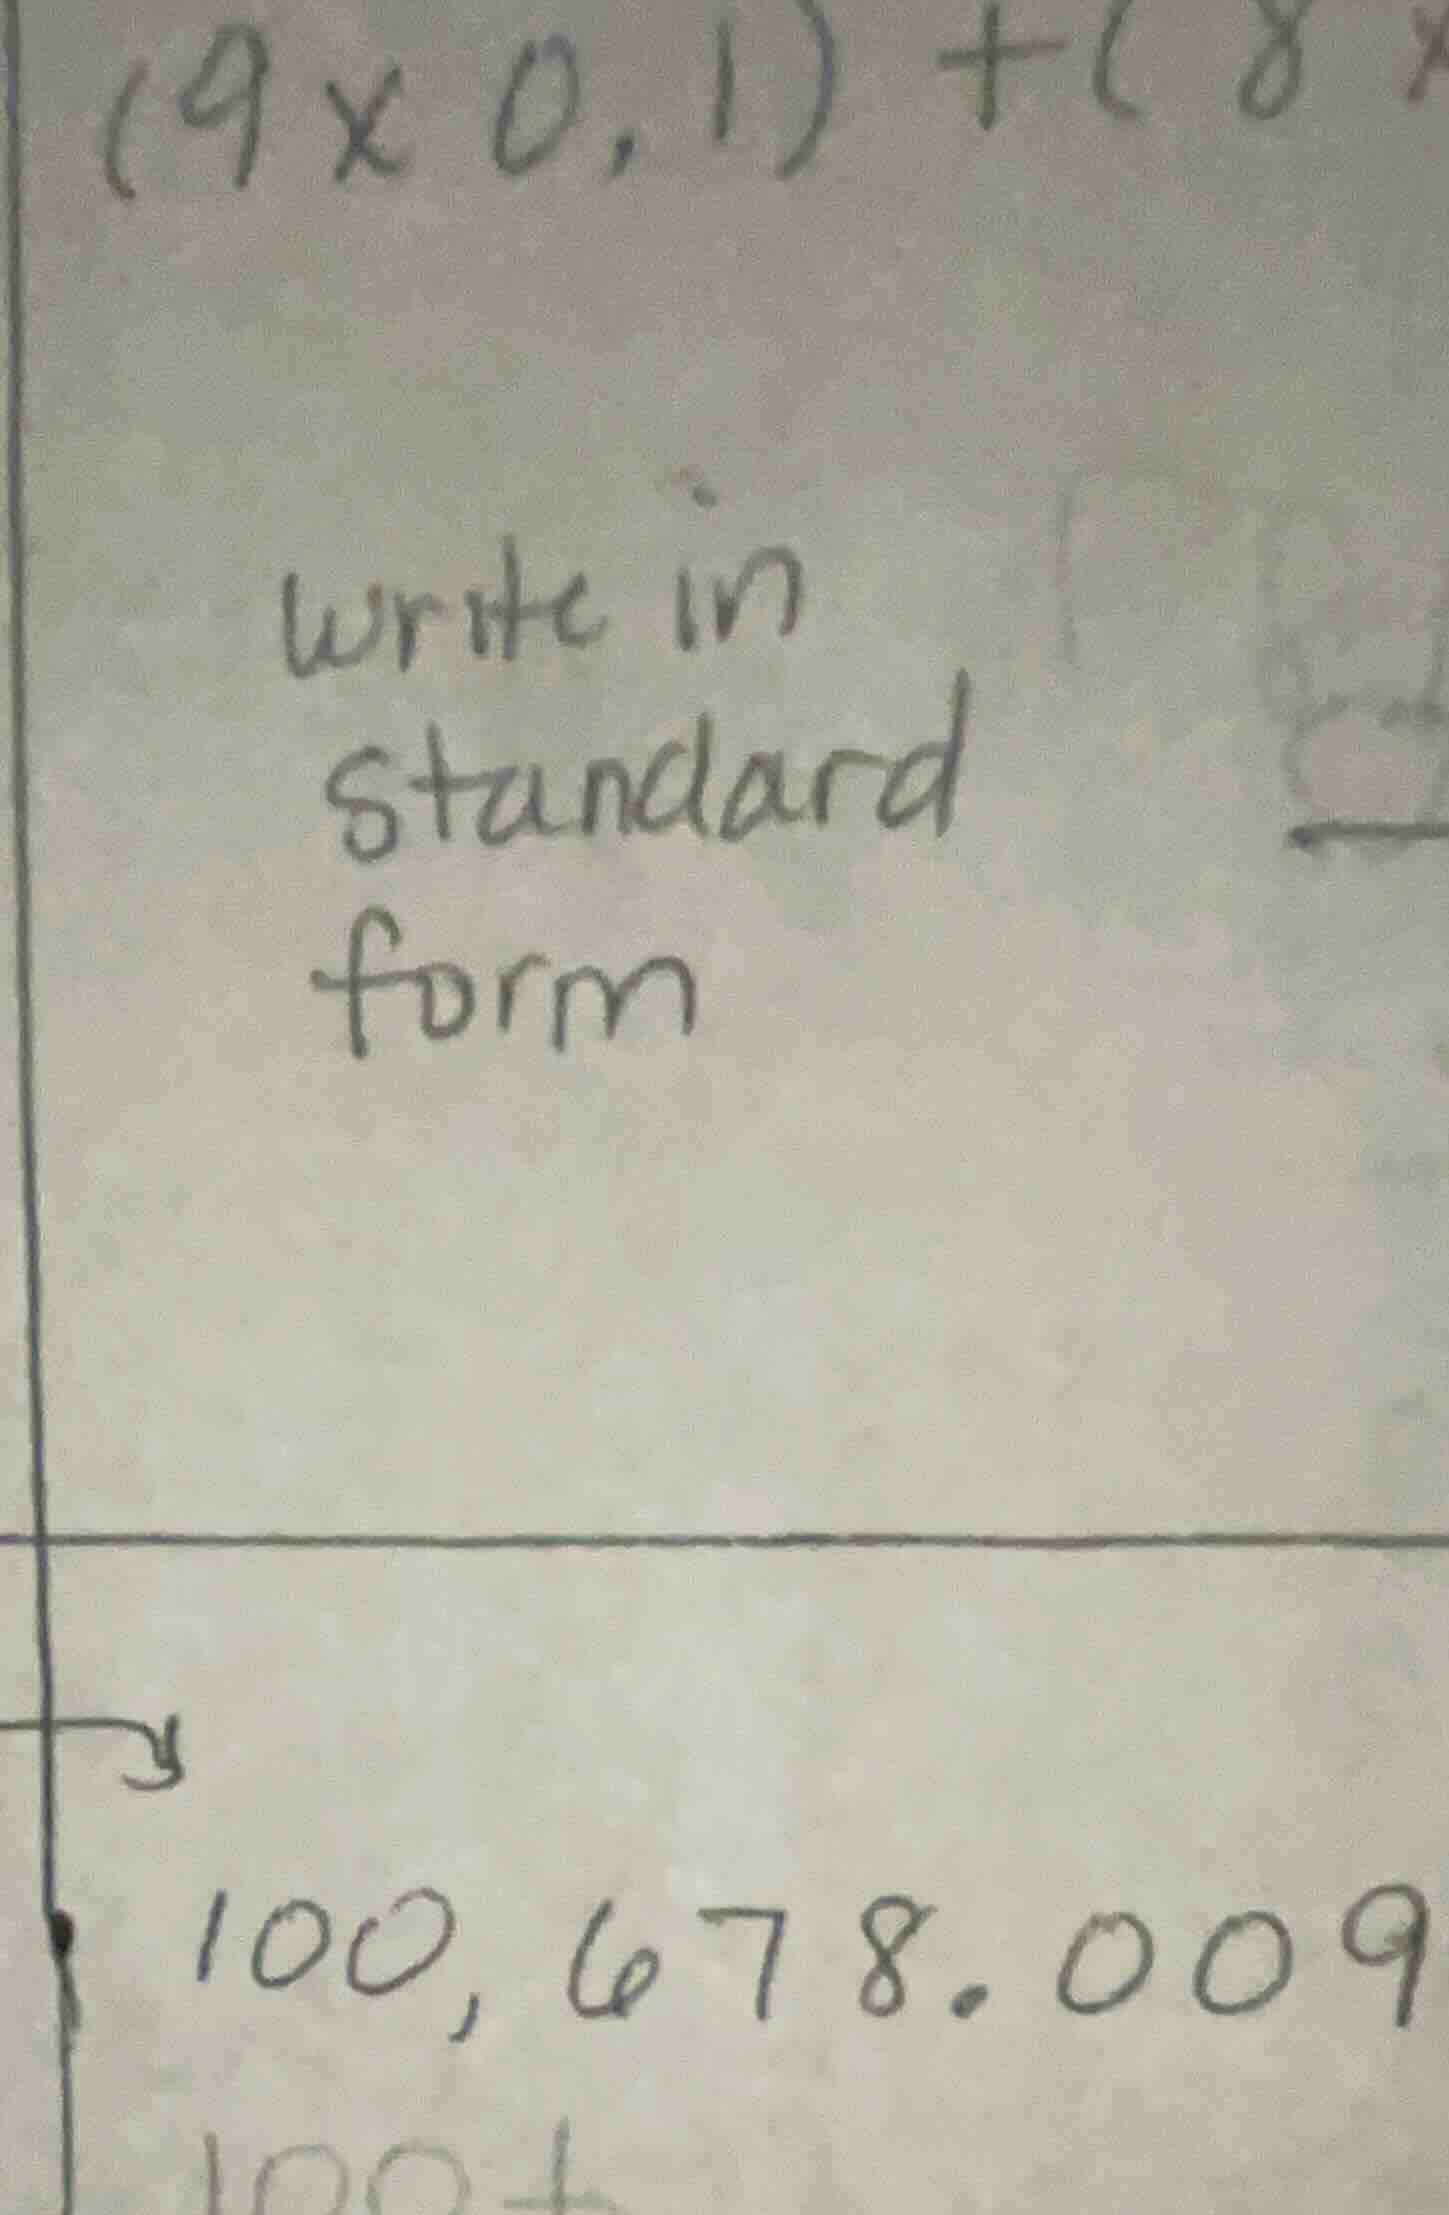 (9 x 0.1) + ( 8 x
write in
standard
form
100,678.009
100+